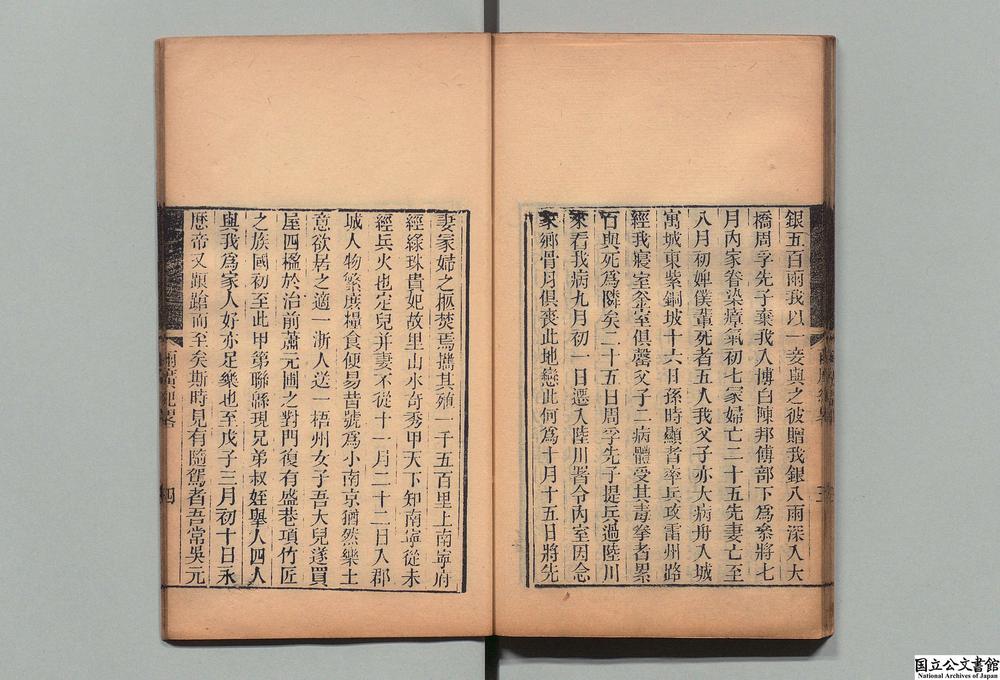 銀五百兩我以一妾與之彼贈我銀八兩深入大
橋周孚先子棄我入博白陳邦傅部下為叅將七
月內家眷染瘴氣初七家婦亡二十五先妻亡至
八月初婢僕輩死者五人我父子亦大病舟入城
寓城東紫銅坡十六日孫時顯者率兵攻雷州路
經我寢室弁室俱罄父子二病體受其毒拳者累
百與死為隣矣二十五日周孚先子提兵過陸川
來看我病九月初一日遷入陸川者令內室因念
家鄉骨月俱喪此地戀此何為十月十五日將先
妻家婦之柩焚焉攜其殖一千五百里上南寧府
經綠珠貴妃故里山水奇秀甲天下知南寧從未
經兵火也定兒幷妻不從十一月二十二日入郡
城人物繁庶糧食便易昔號為小南京猶然樂土
意欲居之適一浙人送一梧州女子吾大兒遂買
屋四楹於治前蕭元圃之對門復有盛巷項竹匠
之族國初至此甲第聯緜現兄弟叔姪舉人四人
與我為家人好亦足樂也至戊子三月初十日永
曆帝又踉蹌而至矣斯時見有隨駕者吾常吳元
兩廣紀畧
四
国立公文書館
National Archives of Japan